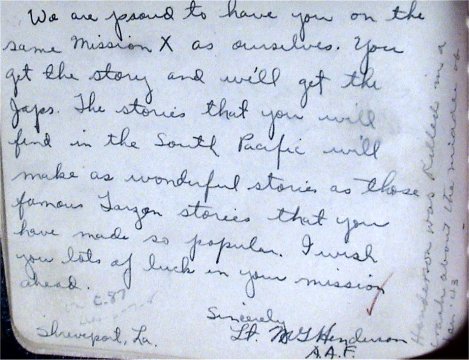 We are proud to have you on the
same Mission X as ourselves. You
get the story and we'll get the
Japs. The stories that you will
find in the South Pacific will
make as wonderful stories as those
famous Tarzan stories that you
have made so popular. I wish
you lots of luck in your mission
ahead.
C.87
Sincerely
Shreveport, La.
Lt. McG Henderson
A.A.F.
Henderson was killed in a
crash about the middle of
Jan '43